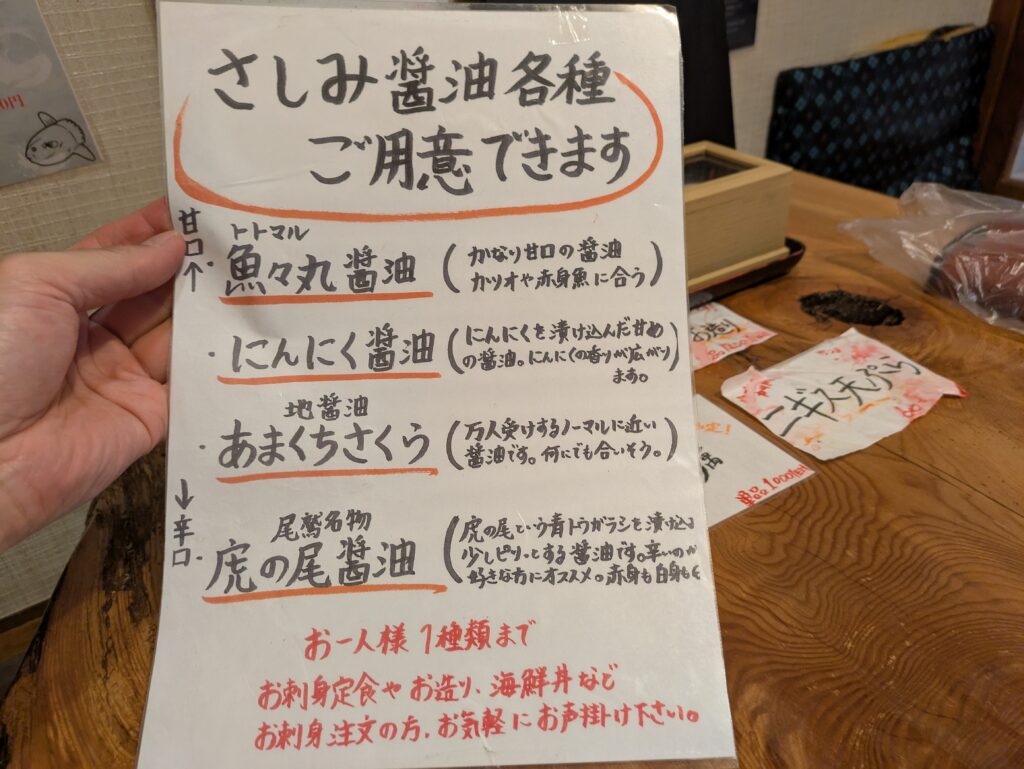 さしみ醤油各種
ご用意できます
甘口↑
トトマル
・魚々丸醤油
(かなり甘口の醤油
カツオや赤身魚に合う)
・にんにく醤油
(にんにくを漬け込んだ甘め
の醤油。にんにくの香りが広がり
ます。)
地醤油
・あまくちさくら
(万人受けするノーマルに近い
醤油です。何にでも合いそう。)
↓辛口
尾鷲名物
・虎の尾醤油
(虎の尾という青トウガラシを漬け込
少しピリッとする醤油です。辛いのが
好きな方にオススメ。赤身も白身も
お一人様1種類まで
お刺身定食やお造り、海鮮丼など
お刺身注文の方、お気軽にお声掛け下さい。
お造り
ニギス天ぷら
単品1000